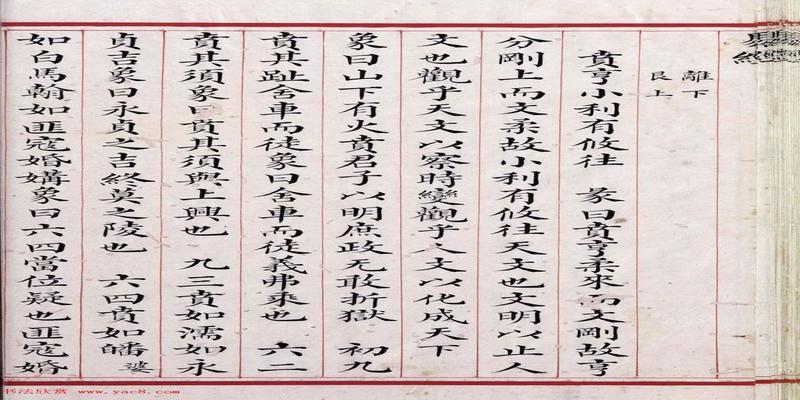 離下
艮上
賁亨小利有攸往　彖曰賁亨柔來而文剛故亨
分剛上而文柔故小利有攸往天文也文明以止人
文也觀乎天文以察時變觀乎人文以化成天下
象曰山下有火賁君子以明庶政无敢折獄　初九
賁其趾舍車而徒象曰舍車而徒義弗乘也　六二
賁其須象曰賁其須與上興也　九三賁如濡如永
貞吉象曰永貞之吉終莫之陵也　六四賁如皤婆
如白馬翰如匪寇婚媾象曰六四當位疑也匪寇婚
书法欣赏 www.yac8.com